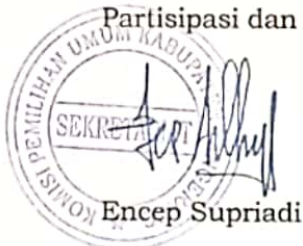 Partisipasi dan
KOMISI PEMILIHAN UMUM KABUPATEN
SEKRETARIAT
Encep Supriadi